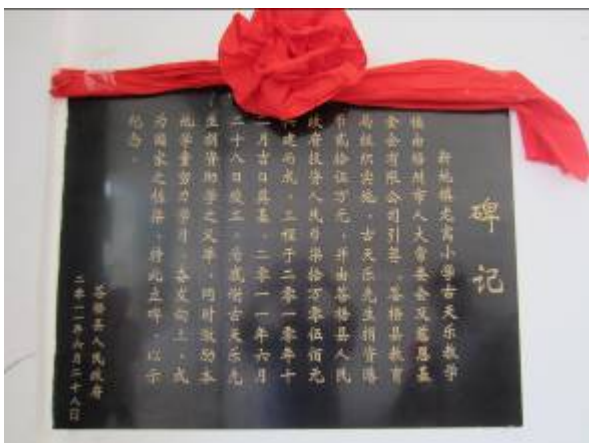 碑记
新地镇龙窝小学古天乐教学
楼由梧州市人大常委会及慈恩基
金会有限公司引荐，苍梧县教育
局组织实施，古天乐先生捐资港
币贰拾伍万元，并由苍梧县人民
政府投资人民币柒拾万零伍佰元
兴建而成，工程于二零一零年十
二月吉日奠基，二零一一年六月
二十八日竣工，为感谢古天乐先
生捐资助学之义举，同时激励本
地学童努力学习，奋发向上，成
为国家之栋梁，特此立碑，以示
纪念。
苍梧县人民政府
二零一一年六月二十八日